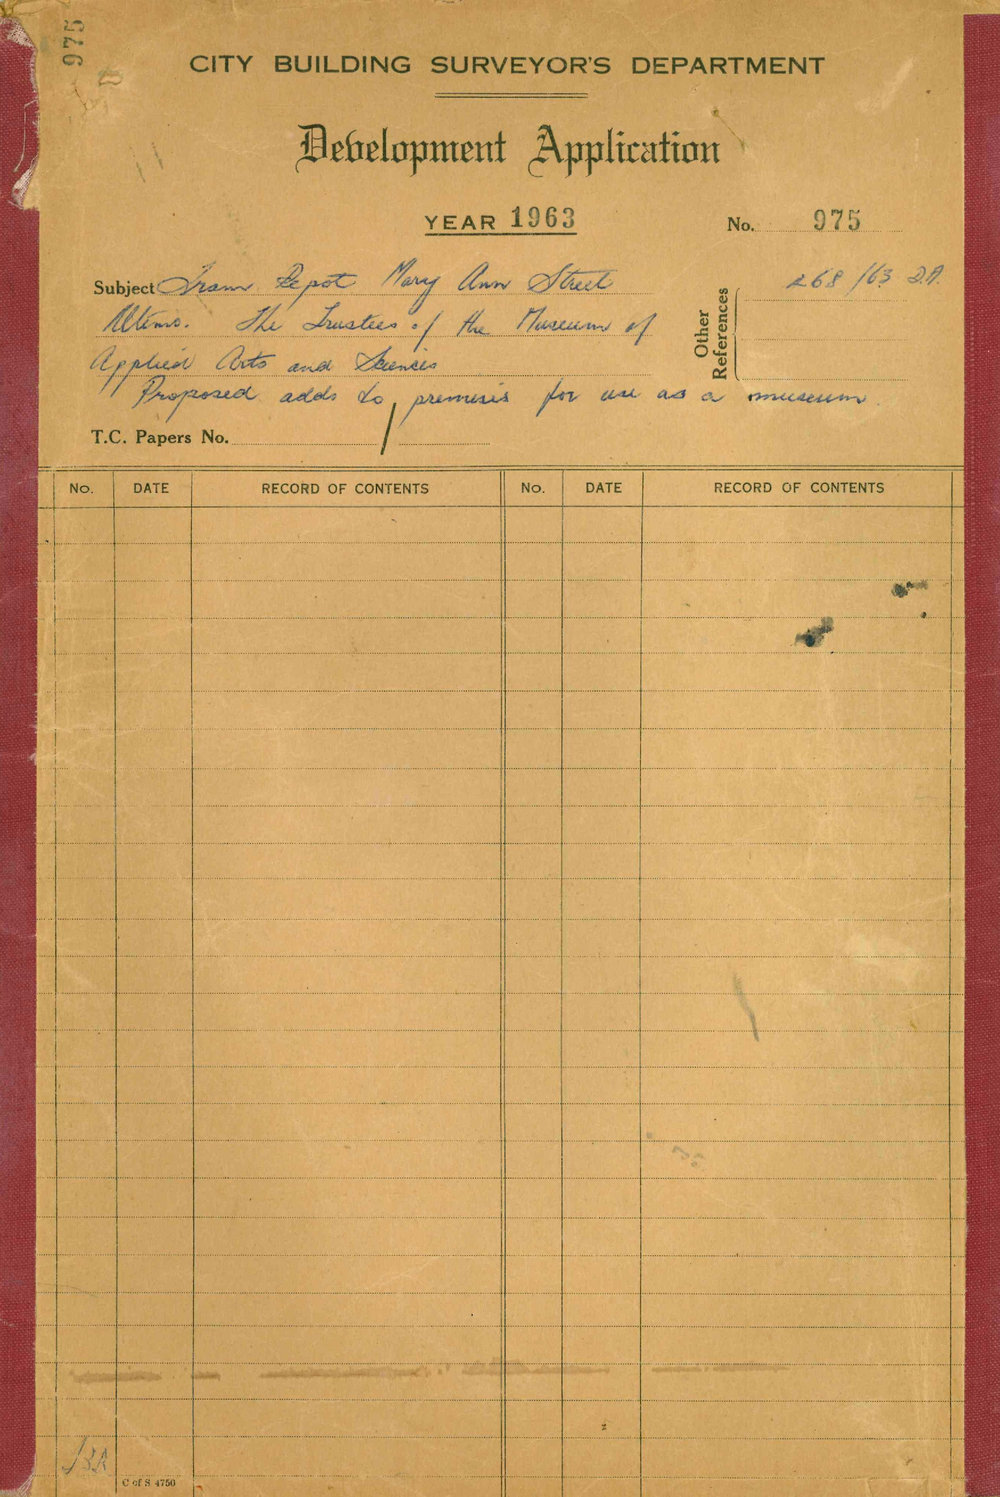 975
CITY BUILDING SURVEYOR'S DEPARTMENT
Development Application
YEAR 1963
No. 975
Subject Tram Depot Mary Ann Street
Ultimo. The Trustees of the Museum of
Applied Arts and Sciences
Proposed adds to premises for use as a museum.
Other References 268/63 D.A.
T.C. Papers No. /
No. DATE RECORD OF CONTENTS No. DATE RECORD OF CONTENTS
C of S 4750